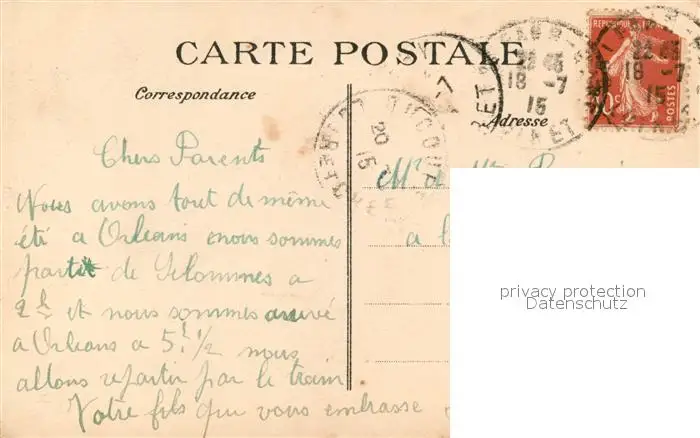 CARTE POSTALE
Correspondance
Adresse
REPUBLIQUE
POSTES
18 -7
15
18 -7
15
20
15
Chers Parents
Nous avons tout de même
été a Orleans nous sommes
partit de Selommes a
2h et nous sommes arrivé
a Orleans a 5h 1/2 nous
allons repartir par le train
Votre fils qui vous embrasse
Mr
a
privacy protection
Datenschutz